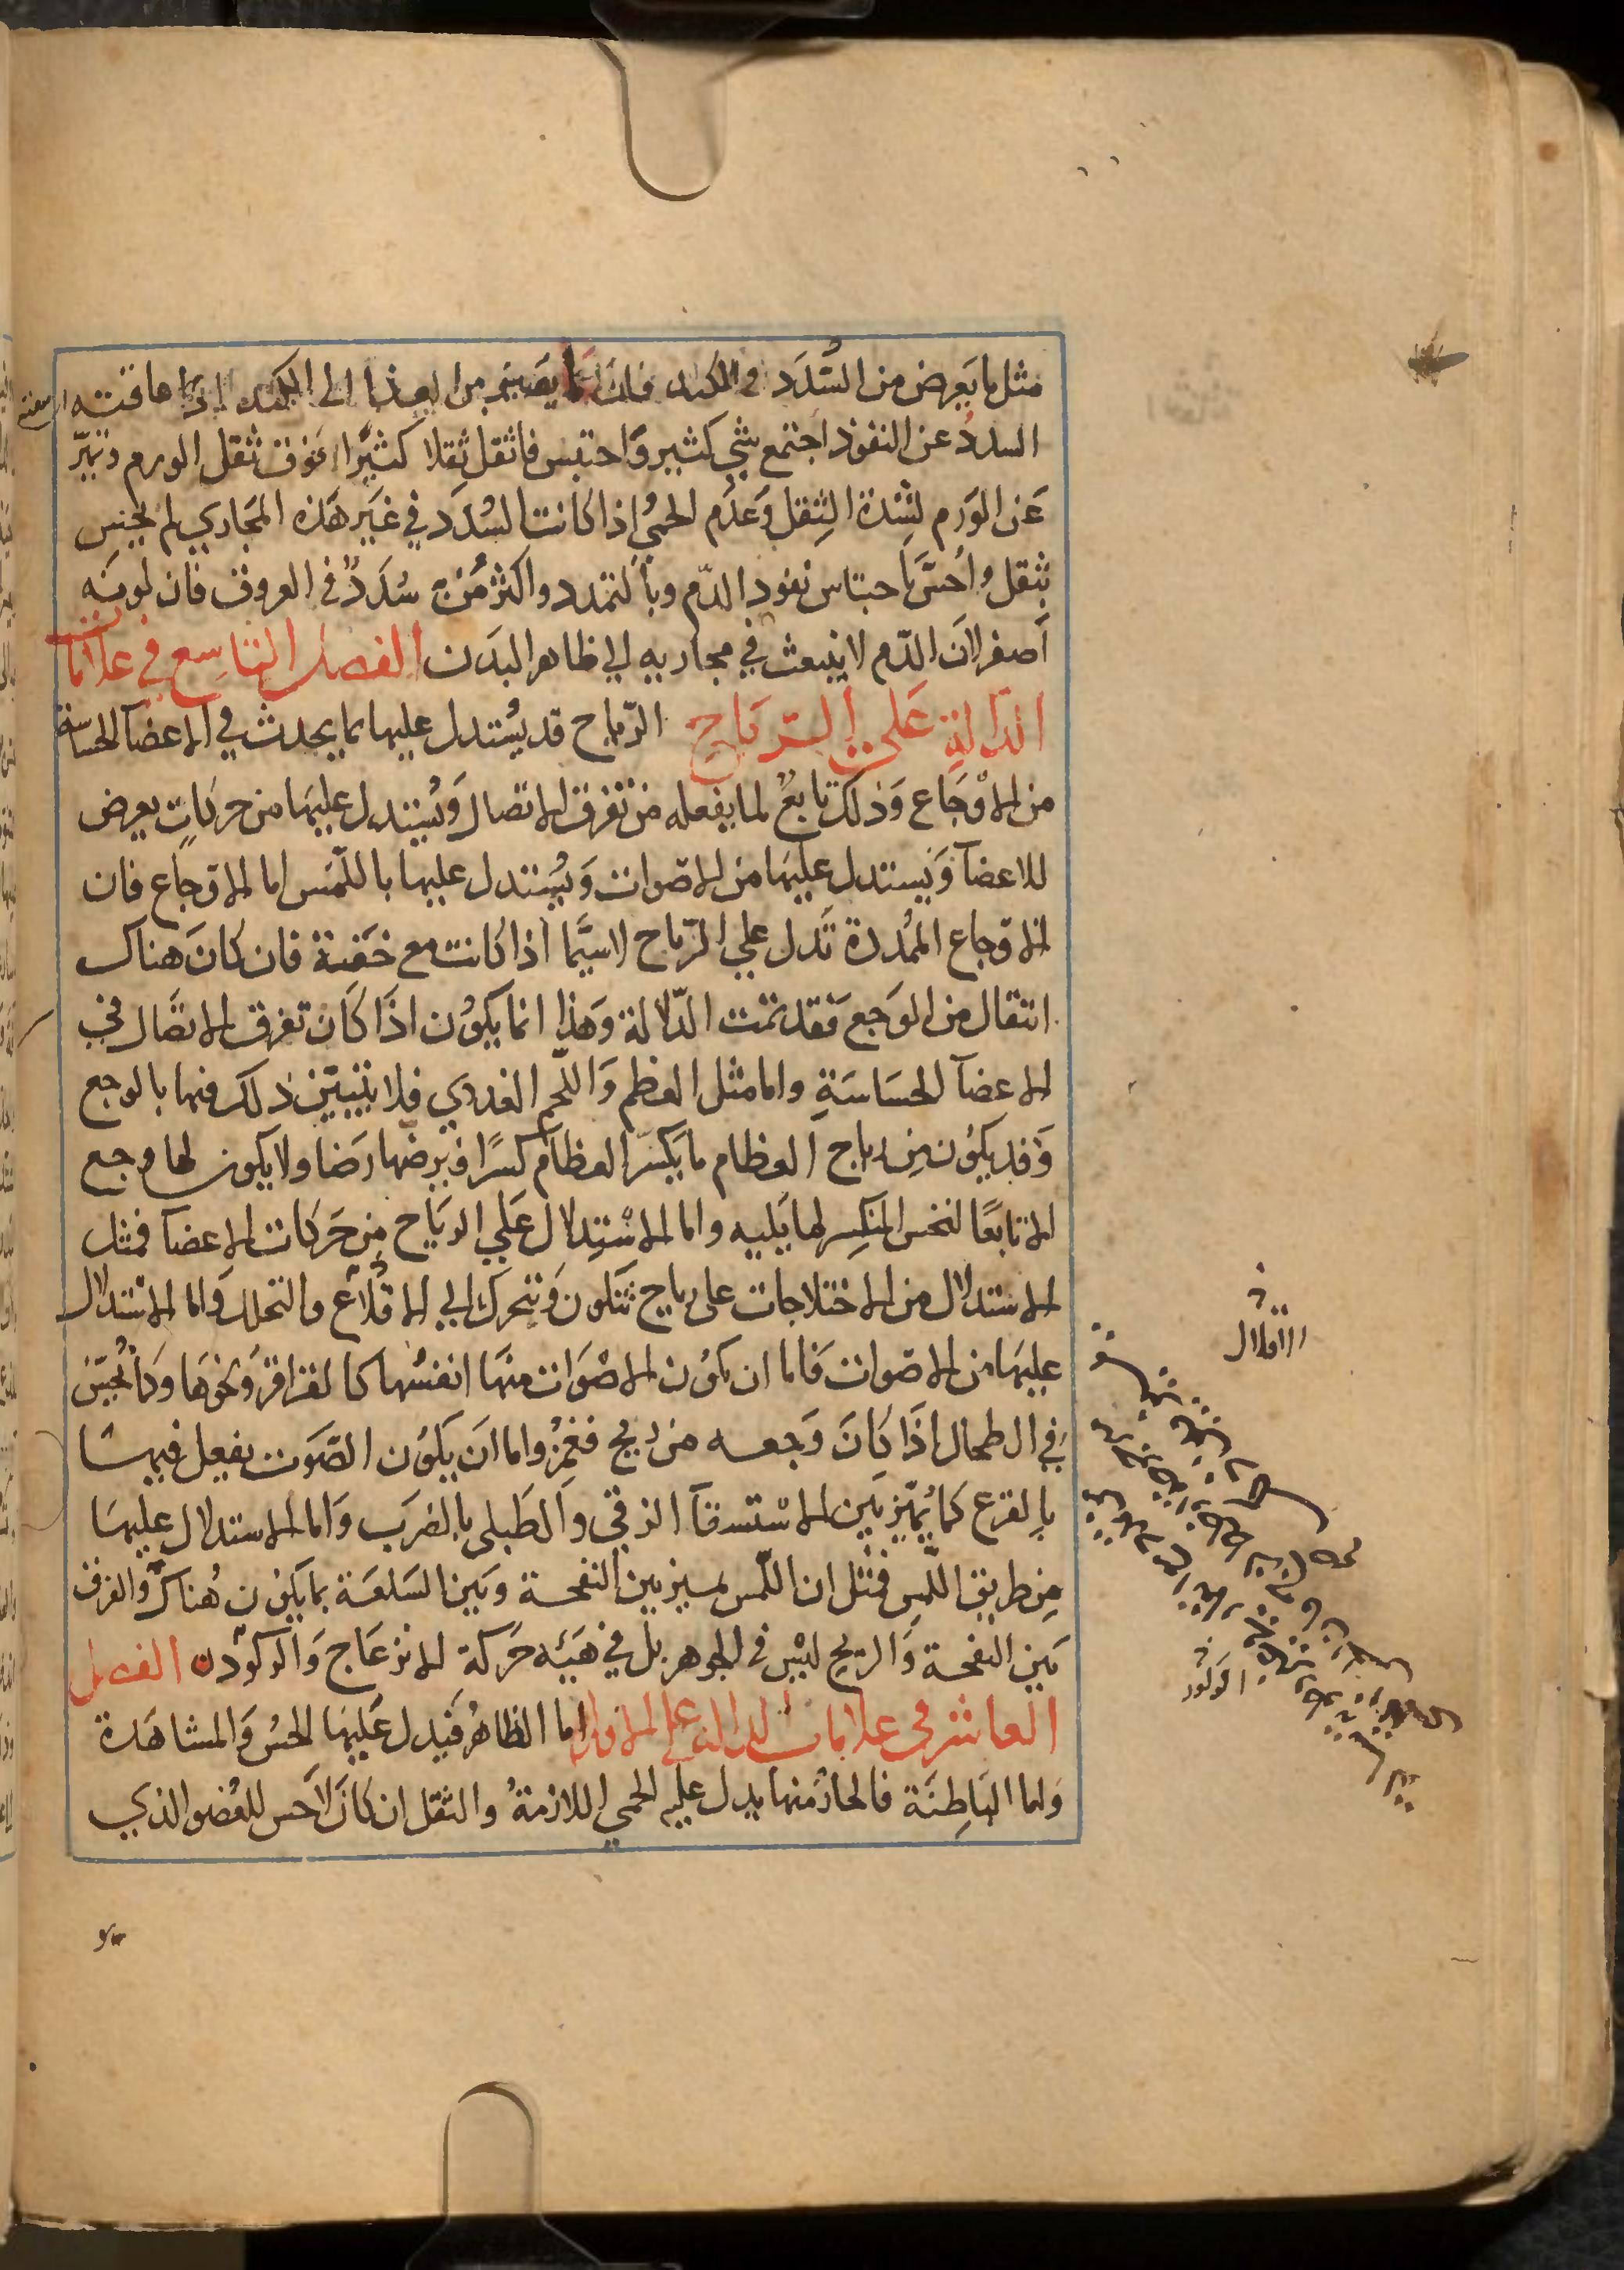 مثل ما يعرض من السُّدَد في الكبد فان ما يصير من الغذا الى الكبد اذا عاقته
السددُ عن النفوذ اجتمع شي كثير وَّاحتبس فاثقل ثِقلا كثيرًا فوق ثقل الورم ويميّز
عَن الوَرم لِشدّة الثِقل وَعَدَم الحمى اذا كانت السُدَد في غَير هَذه المجاري لم يحبس
بثقل واُحسّ باحتباس نفوذ الدّم وبالتمدد واكثر مَن به سُدَدٌ في العروق فان لونه
اَصفر لاَن الدّم لا ينبعث في مجاريه الى ظاهر البدَن الفصل التاسع في علامات
الدالة عَلى الرّيَاح الرّياح قد يُستدل عليها بما يحدث في الاعضآ الحساسة
من الاوْجَاع وَذلك تابعٌ لما يفعله من تفرق الاتصال وَيُستدل عليهَا من حركاتٍ يعرض
للاعضآ وَيستدل عليهَا من الاصوات وَيُستدل عليها باللّمس اما الاوجاع فان
الاوجاع الممُدّدة تَدل على الرّياح لاسيَّما اذا كانت مع خفة فان كانَ هناك
انتقال من الوَجع فقد تمت الدّلالة وَهذا انما يكوُن اذَا كاَن تفرق الاتصَال في
الاعضآ الحسَاسَةِ واما مثل العظم وَاللّحم الغددي فلا يتبيّن ذلك فيها بالوجع
وَقد يكوُن مِن رياح العظام ما يكسّر العظام كسرًا ويرضّها رَضا ولا يكون لها وجع
الا تابعًا لنخس المنكسِر لما يَليه واما الاسْتِدلال عَلى الريَاح مِن حَركات الاعضآ فمثل
الاستدلال من الاختلاجات على رياح تتكون وَتتحرك الى الاقلاع والتحلل وَاما الاستدلال
عليهَا من الاصوات فاما ان يكوُن الاصْوَات منهَا انفسُها كالقراقر وَنحوهَا وَكما يُحسّ
في الطحال اذَا كانَ وَجعه من ريح فغمز واما اَن يَكوُن الصّوت يفعل فيهَا
بالقرع كما يُميّز بَين الاسْتسقآ الزقي وَالطَبلي بالضرَب وَاما الاستدلال عليهَا
مِن طريق اللّمسِ فمثل ان اللّمس يميز بين النفخة وَبَين السَلعَة بما يَكوُن هُناك والفرق
بَين النفخة وَالريح ليْس في الجوهر بل في هَيئه حَركة الانزعَاج وَالركوُد الفصل
العاشر في علامات الدالة على الاورام اما الظاهرُ فَيدل عَليهَا الحسُ وَالمشاهَدة
وَاما البَاطِنَة فالحارُ منها يدل عليه الحمى اللازمةُ والثقل ان كانَ لاَحس للعُضو الذي
الاقلال
الركود